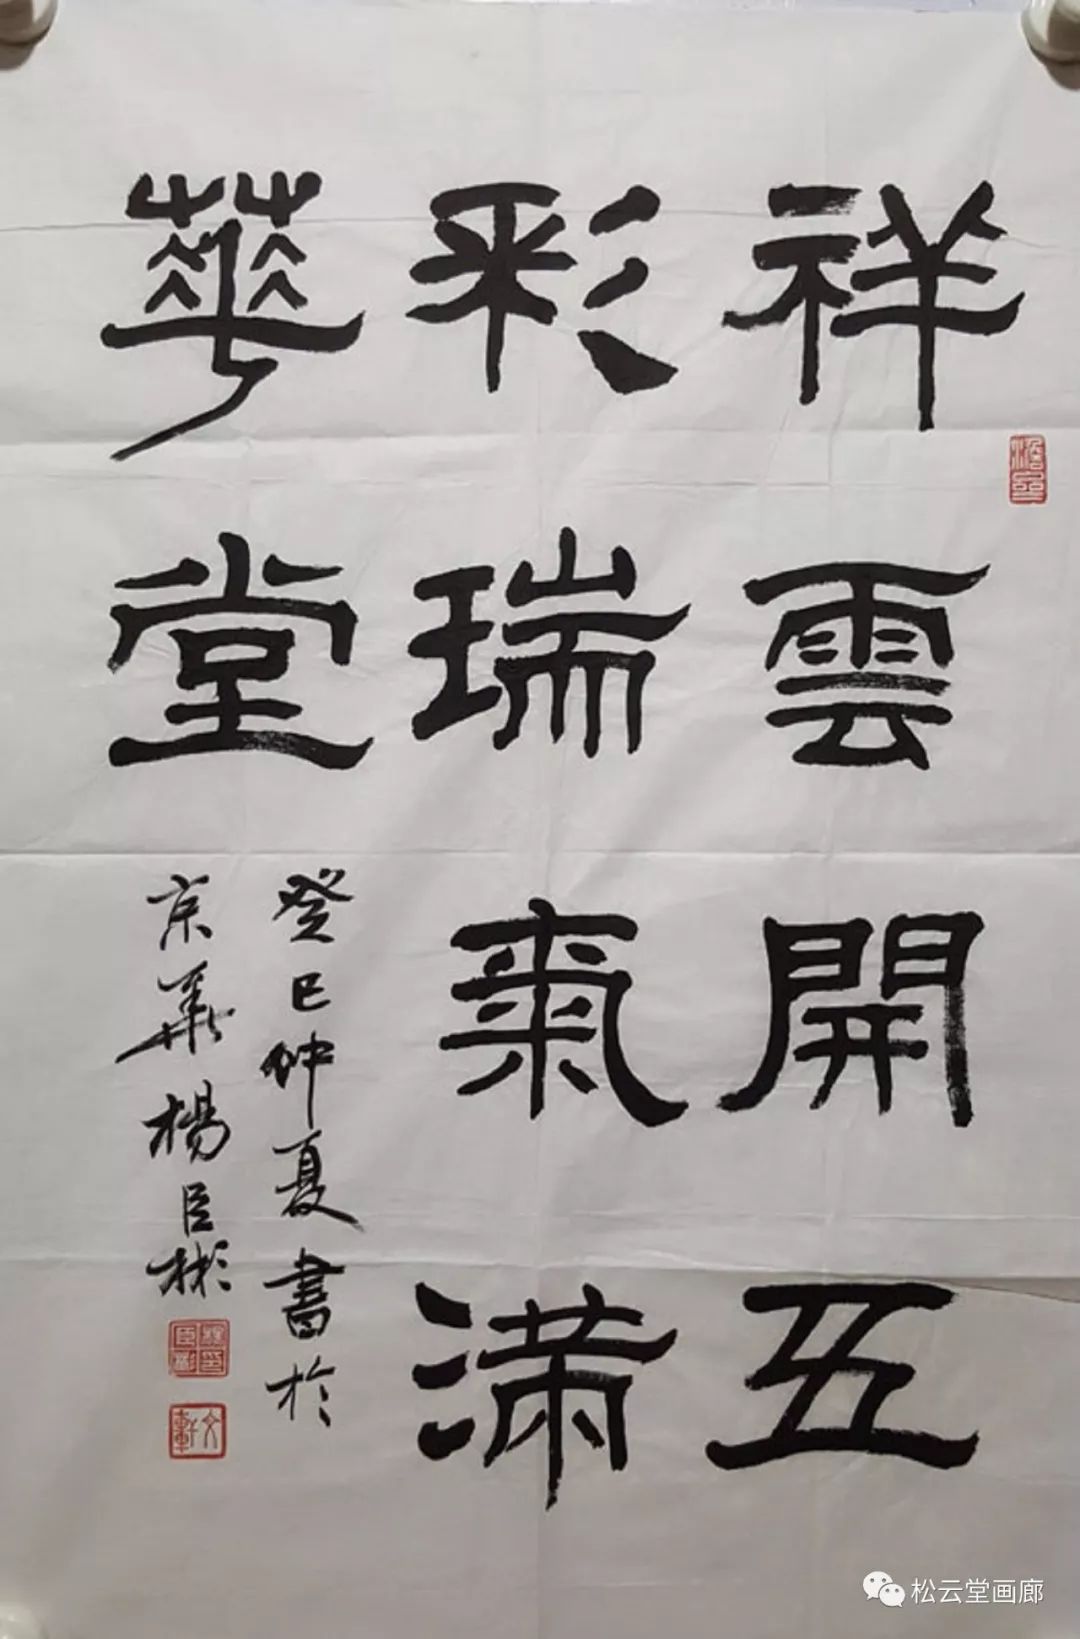 祥雲開五
彩瑞氣滿
華堂
癸巳仲夏書於
京華楊臣彬
松云堂画廊